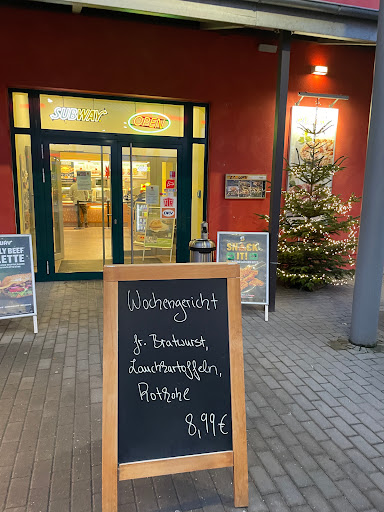 SUBWAY
OPEN
LY BEEF
LETTE
SNACK
IT!
Wochengericht
fr. Bratwurst,
Lauchkartoffeln,
Rotkohl
8,99€